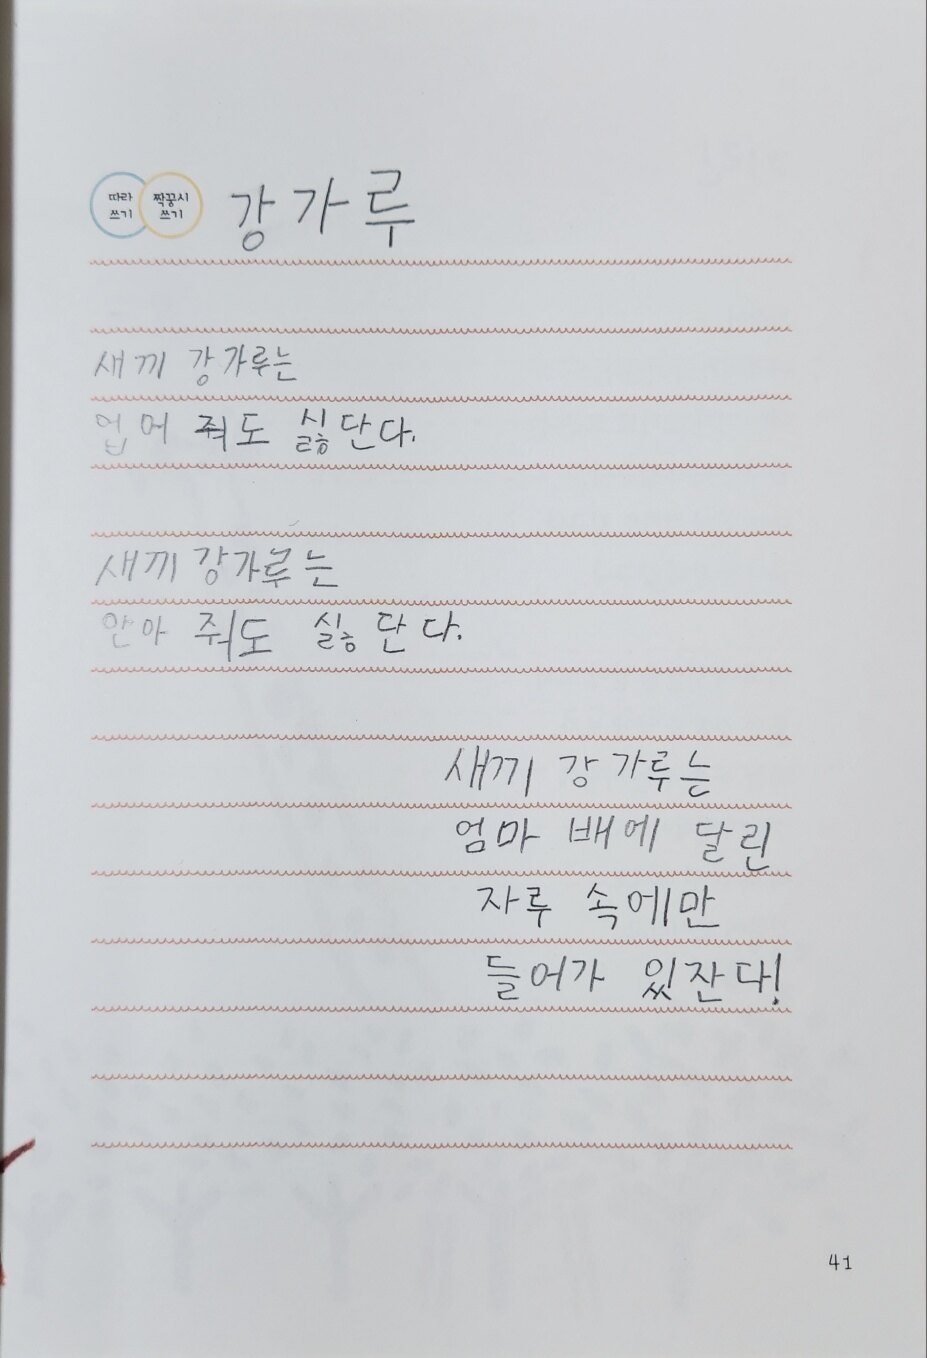 따라 쓰기 짝꿍시 쓰기 강가루
새끼 강가루는
업어 줘도 싫단다.
새끼 강가루는
안아 줘도 싫단다.
새끼 강가루는
엄마 배에 달린
자루 속에만
들어가 있잔다!
41